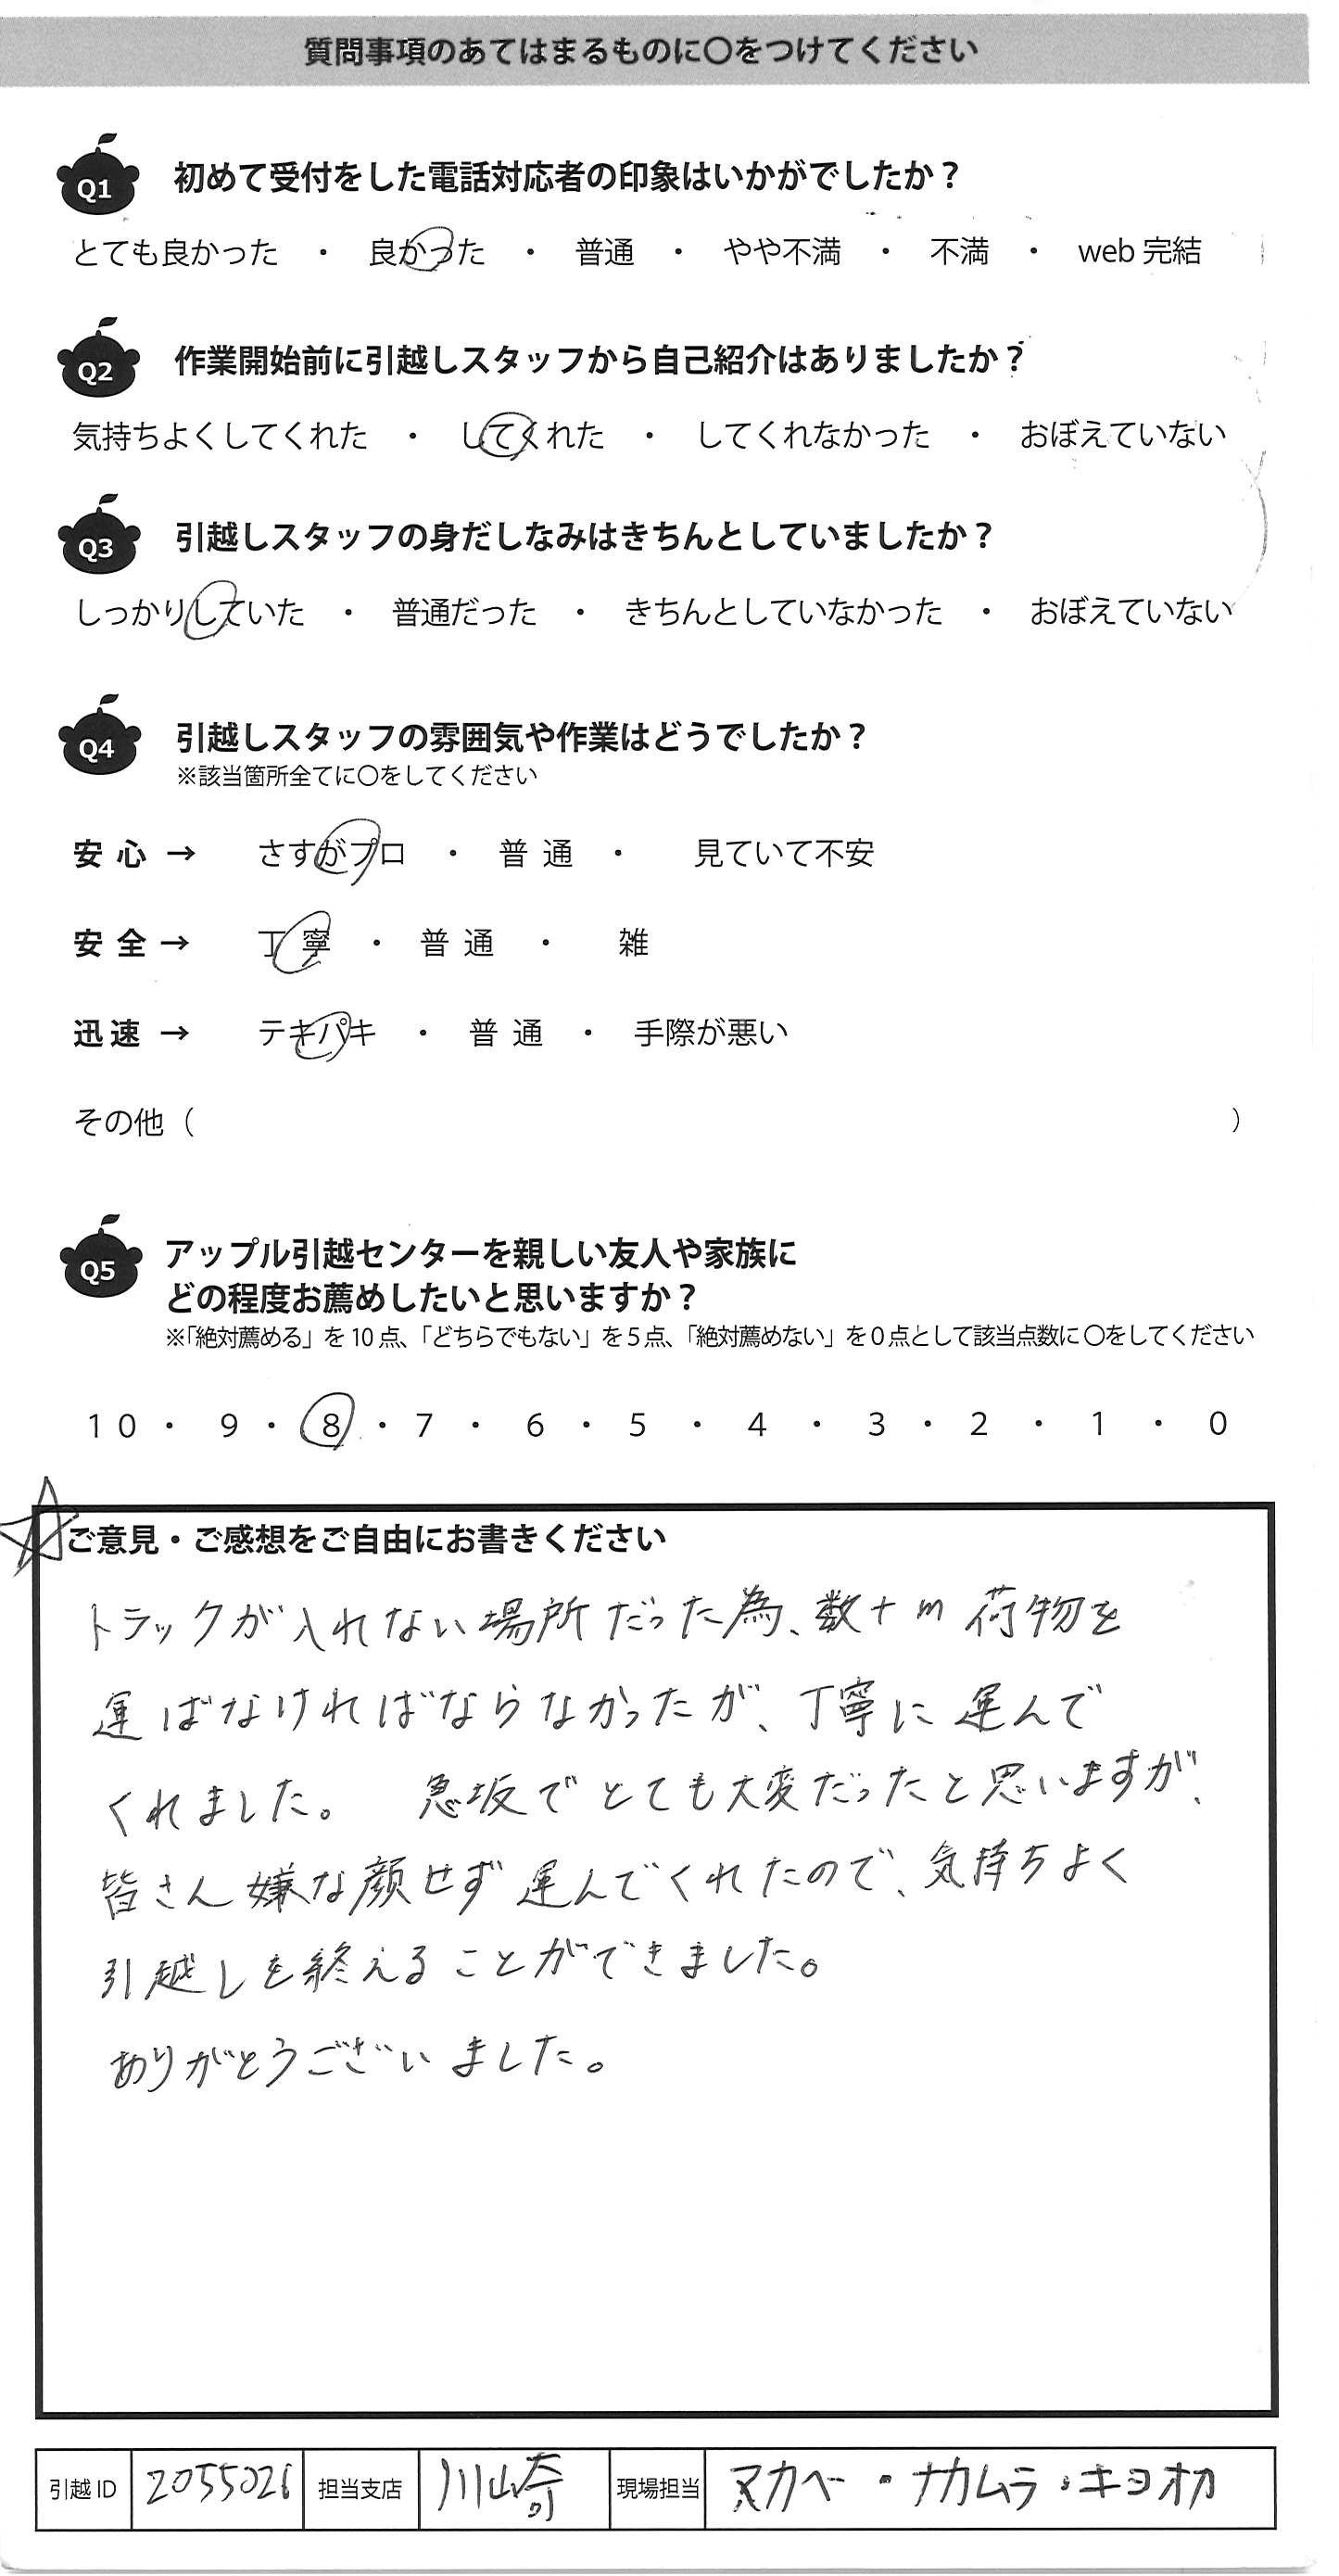 質問事項のあてはまるものに〇をつけてください
Q1 初めて受付をした電話対応者の印象はいかがでしたか？
とても良かった ・ 良かった ・ 普通 ・ やや不満 ・ 不満 ・ web 完結
Q2 作業開始前に引越しスタッフから自己紹介はありましたか？
気持ちよくしてくれた ・ してくれた ・ してくれなかった ・ おぼえていない
Q3 引越しスタッフの身だしなみはきちんとしていましたか？
しっかりしていた ・ 普通だった ・ きちんとしていなかった ・ おぼえていない
Q4 引越しスタッフの雰囲気や作業はどうでしたか？
※該当箇所全てに〇をしてください
安心 → さすがプロ ・ 普通 ・ 見ていて不安
安全 → 丁寧 ・ 普通 ・ 雑
迅速 → テキパキ ・ 普通 ・ 手際が悪い
その他（ ）
Q5 アップル引越センターを親しい友人や家族に
どの程度お薦めしたいと思いますか？
※「絶対薦める」を 10 点、「どちらでもない」を 5 点、「絶対薦めない」を 0 点として該当点数に 〇をしてください
10 ・ 9 ・ 8 ・ 7 ・ 6 ・ 5 ・ 4 ・ 3 ・ 2 ・ 1 ・ 0
ご意見・ご感想をご自由にお書きください
トラックが入れない場所だった為、数十m 荷物を
運ばなければならなかったが、丁寧に運んで
くれました。 急坂でとても大変だったと思いますが、
皆さん嫌な顔せず運んでくれたので、気持ちよく
引越しを終えることができました。
ありがとうございました。
引越 ID 2055026 担当支店 川崎 現場担当 マカベ・ナカムラ・キヨオカ